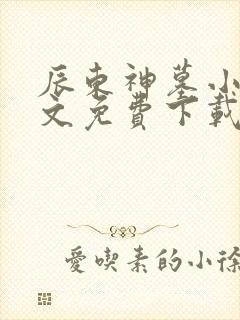 辰东神墓小
文免費下載
愛喫素的小徐